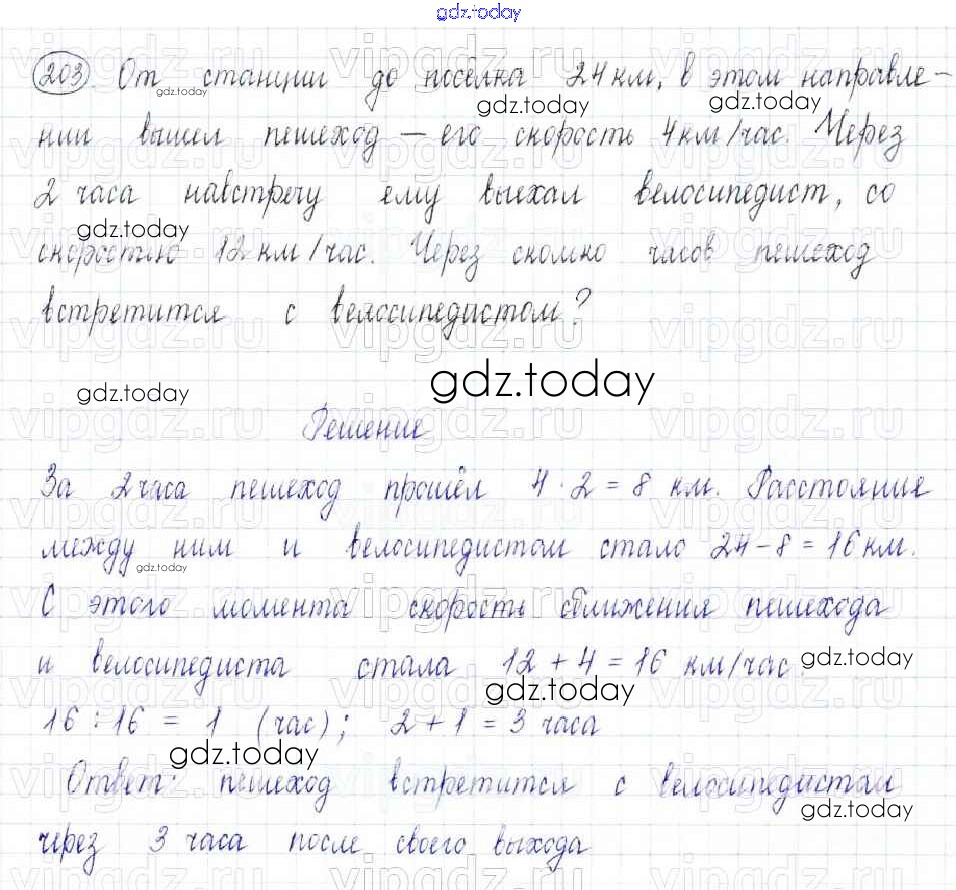 gdz.today
203. От станции до посёлка 24 км, в этом направле-
gdz.today
gdz.today
gdz.today
нии вышел пешеход – его скорость 4 км/час. Через
2 часа навстречу ему выехал велосипедист, со
gdz.today
скоростью 12 км/час. Через сколько часов пешеход
встретится с велосипедистом?
gdz.today
gdz.today
Решение
За 2 часа пешеход прошёл 4 · 2 = 8 км. Расстояние
между ним и велосипедистом стало 24 – 8 = 16 км.
gdz.today
С этого момента скорость сближения пешехода
и велосипедиста стала 12 + 4 = 16 км/час.
gdz.today
gdz.today
16 : 16 = 1 (час); 2 + 1 = 3 часа
gdz.today
Ответ: пешеход встретится с велосипедистом
gdz.today
через 3 часа после своего выхода